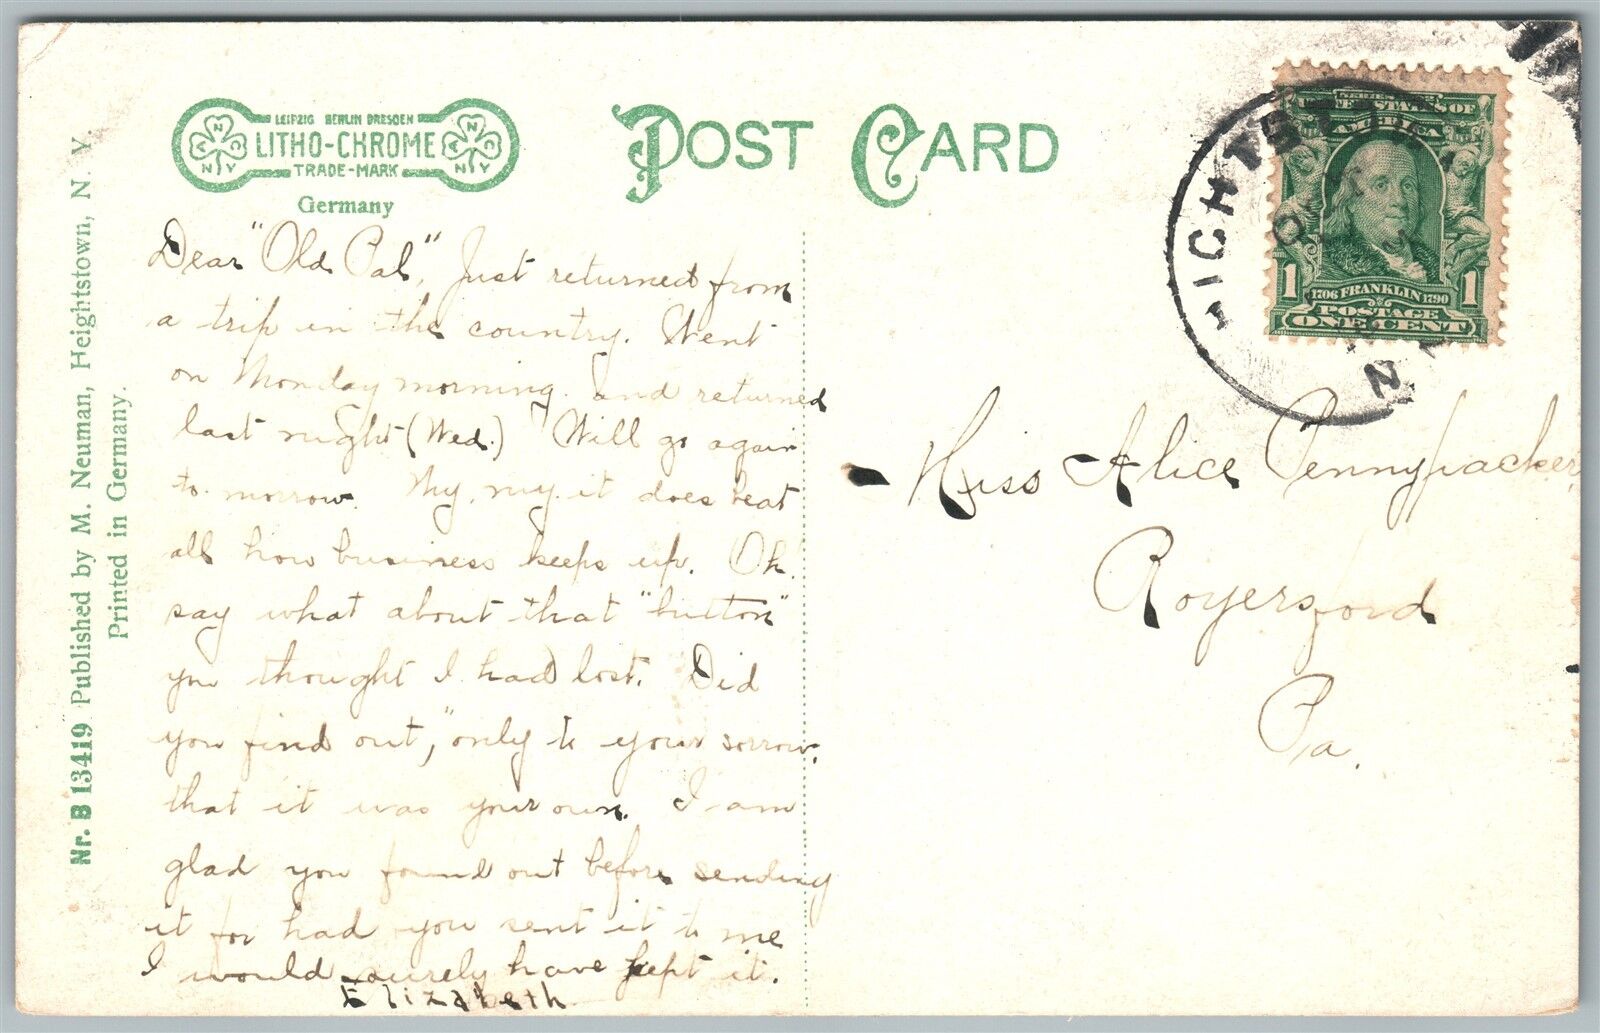 LEIPZIG BERLIN DRESDEN
LITHO-CHROME
TRADE-MARK
N.Y.
N.Y.
Germany
POST CARD
SERIES 1902
UNITED STATES OF
AMERICA
1 1
1706 FRANKLIN 1790
POSTAGE
ONE CENT
HIGHTST
N.J.
Nr. B 13419 Published by M. Neuman, Heightstown, N. Y.
Printed in Germany.
Dear "Old Pal", Just returned from
a trip in the country. Went
on Monday morning and returned
last night (Wed.) Will go again
to-morrow. My, my it does beat
all how business keeps up. Oh
say what about that "button"
you thought I had lost. Did
you find out, "only to your sorrow,
that it was your own. I am
glad you found out before sending
it for had you sent it to me
I would surely have kept it.
Elizabeth
Miss Alice Pennypacker,
Royersford
Pa.